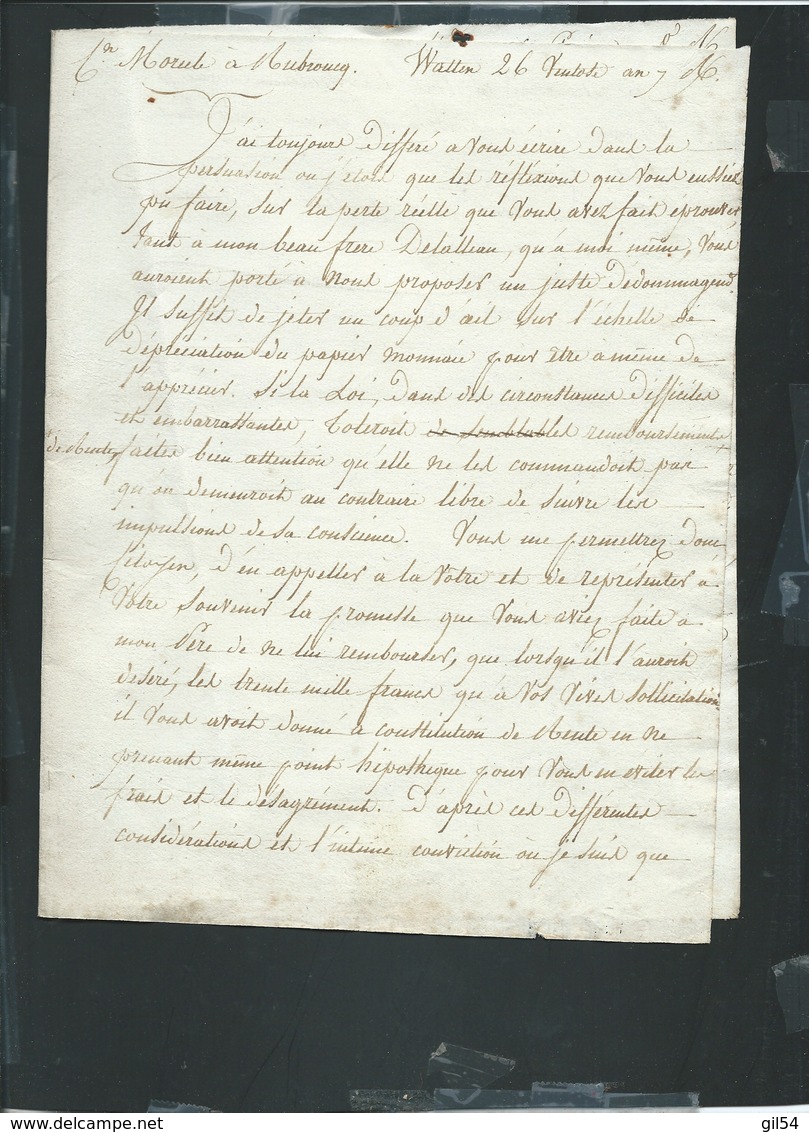 Cn Morcele à Rubroucq. Watten 26 Ventose an 7
J'ai toujours differé a vous écrire dans la
persuasion ou j'etois que les réflexions que vous eussiez
pu faire, sur la perte réelle que vous avez fait eprouver
tant à mon beau frere Delatteau, qu'à moi même, vous
auroient porté à nous proposer un juste dedommagemt.
Il suffit de jeter un coup d'œil sur l'échelle de
dépréciation du papier monnaie pour être à même de
l'apprécier. Si la Loi, dans des circonstances difficiles
et embarrassantes, toleroit de semblables remboursements
de Rente, faites bien attention qu'elle ne les commandoit pas
qu'on demeuroit au contraire libre de suivre les
impulsions de sa conscience. Vous me permettrez donc
Citoyen, d'en appeller à la votre et de représenter a
votre souvenir la promesse que vous aviez faite a
mon Pere de ne lui rembourser, que lorsqu'il l'auroit
desiré, les trente mille francs qu'à vos vives sollicitation
il vous avoit donné a constitution de Rente en ne
prenant même point hipotheque pour vous en eviter les
frais et le désagrément. D'après ces différentes
considérations et l'intime conviction où je suis que
gil54